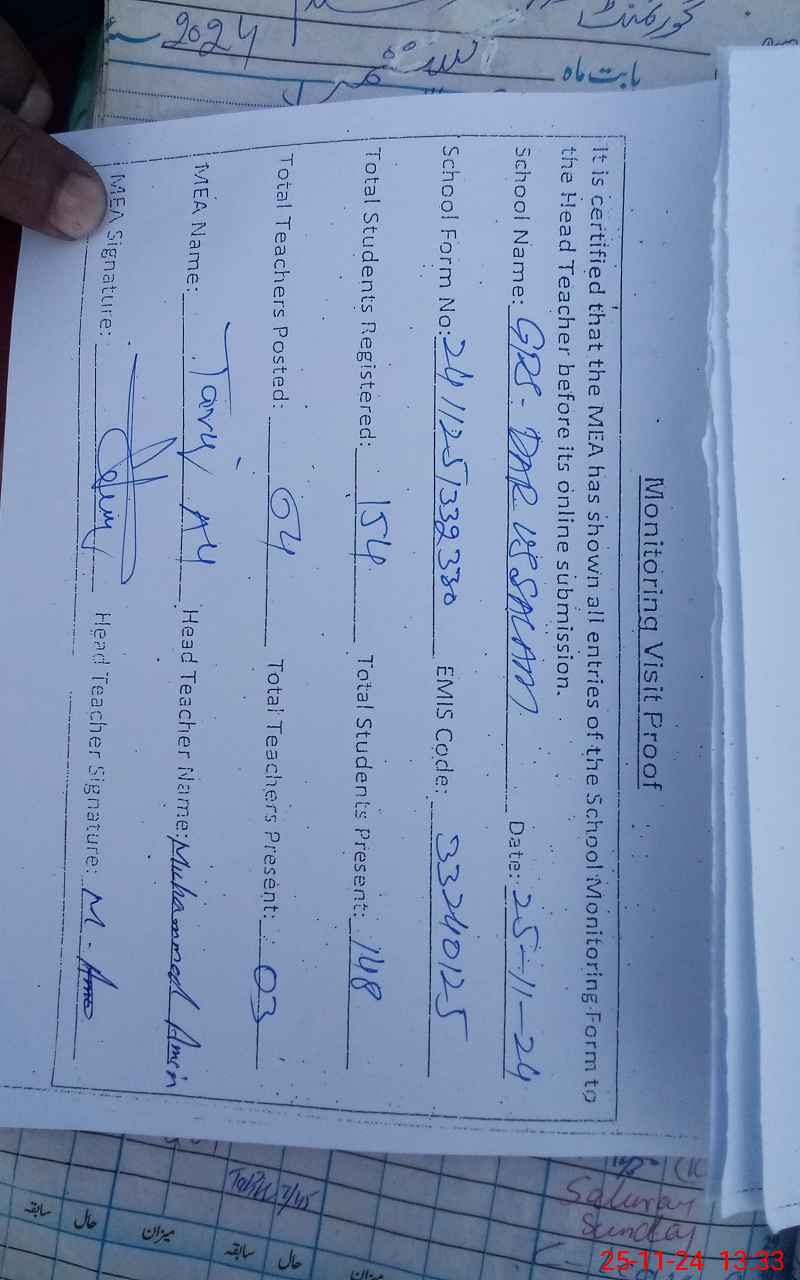 2024
بابت ماہ
Monitoring Visit Proof
It is certified that the MEA has shown all entries of the School Monitoring Form to
the Head Teacher before its online submission.
School Name: GPS - DAR US SALAM Date: 25-11-24
School Form No: 241125133933 EMIS Code: 33240125
Total Students Registered: 154 Total Students Present: 148
Total Teachers Posted: 04 Total Teachers Present: 03
MEA Name: Head Teacher Name: Muhammad Amin
MEA Signature: Head Teacher Signature: M. Amin
Saturday
Sunday
سابقہ حال میزان سابقہ حال میزان
25-11-24 13:33